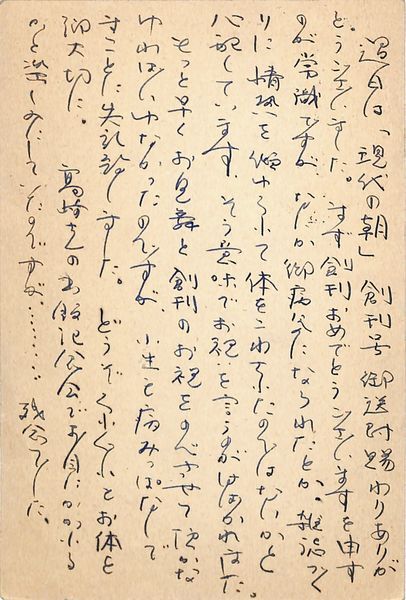 過日は「現代の朝」創刊号御送附賜わりありが
どうございました。まず創刊おめでとうございますを申す
のが常識ですが、なんか御病気になられたとか。雑誌づく
りに情熱を傾けられて体をこわされたのではないかと
心配しています。そう意味でお祝を言うのがはばかれました。
もっと早くお見舞と創刊のお祝をのべさせて頂かな
ければいけなかったのですが、小生も病みっぱなしで
すことに失礼致しました。どうぞくれぐれもお体を
御大切に。高崎さんの出版記念会でお目にかかれる
かと楽しみにしていたのですが………残念でした。